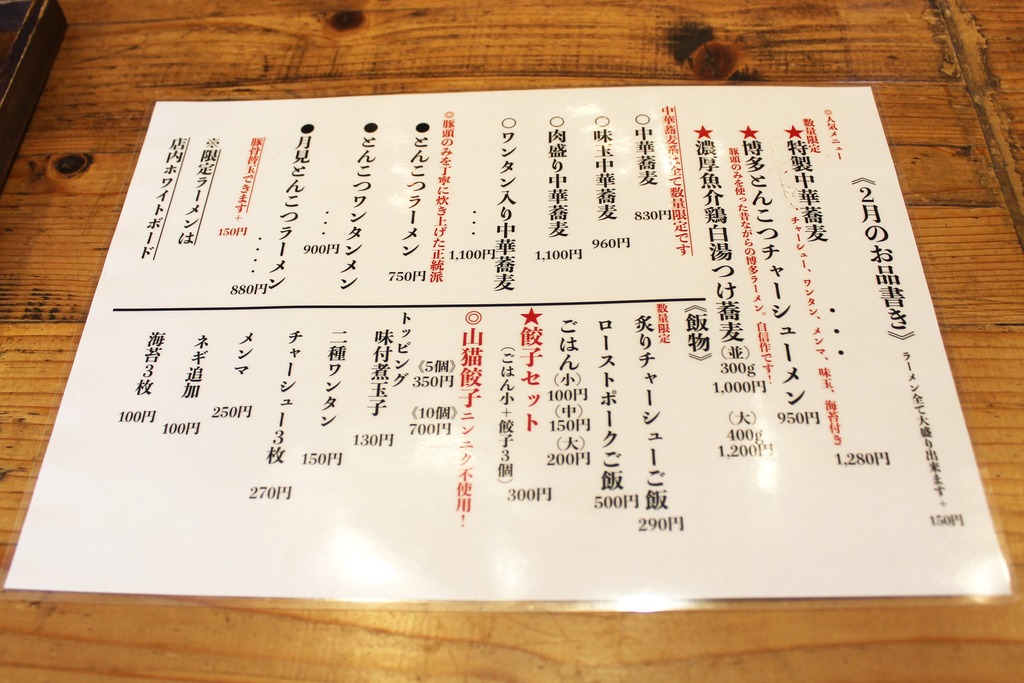 《2月のお品書き》 ラーメン全て大盛り出来ます+150円
◎人気メニュー
数量限定
★特製中華蕎麦 ・・・ 1,280円
チャーシュー、ワンタン、メンマ、味玉、海苔付き
★博多とんこつチャーシューメン 950円
豚頭のみを使った昔ながらの博多ラーメン。自信作です!
★濃厚魚介鶏白湯つけ蕎麦 (並)300g 1,000円 (大)400g 1,200円
中華蕎麦系は全て数量限定です
○中華蕎麦 830円
○味玉中華蕎麦 960円
○肉盛り中華蕎麦 1,100円
○ワンタン入り中華蕎麦 ・・・ 1,100円
◎豚頭のみを丁寧に炊き上げた正統派
●とんこつラーメン 750円
●とんこつワンタンメン ・・・ 900円
●月見とんこつラーメン ・・・・ 880円
豚骨替玉できます+150円
※限定ラーメンは
店内ホワイトボード
《飯物》
数量限定
炙りチャーシューご飯 290円
ローストポークご飯 500円
ごはん(小)100円 (中)150円 (大)200円
★餃子セット
(ごはん小+餃子3個) 300円
◎山猫餃子ニンニク不使用!
《5個》350円 《10個》700円
トッピング
味付煮玉子 130円
二種ワンタン 150円
チャーシュー3枚 270円
メンマ 250円
ネギ追加 100円
海苔3枚 100円